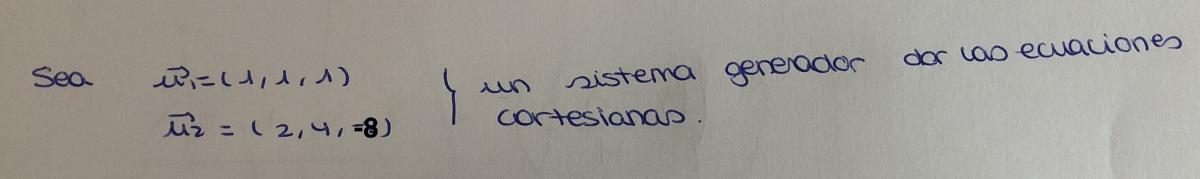 Sea u⃗₁=(1,1,1) } un sistema generador dar las ecuaciones
u⃗₂ = (2,4,-8) cartesianas.